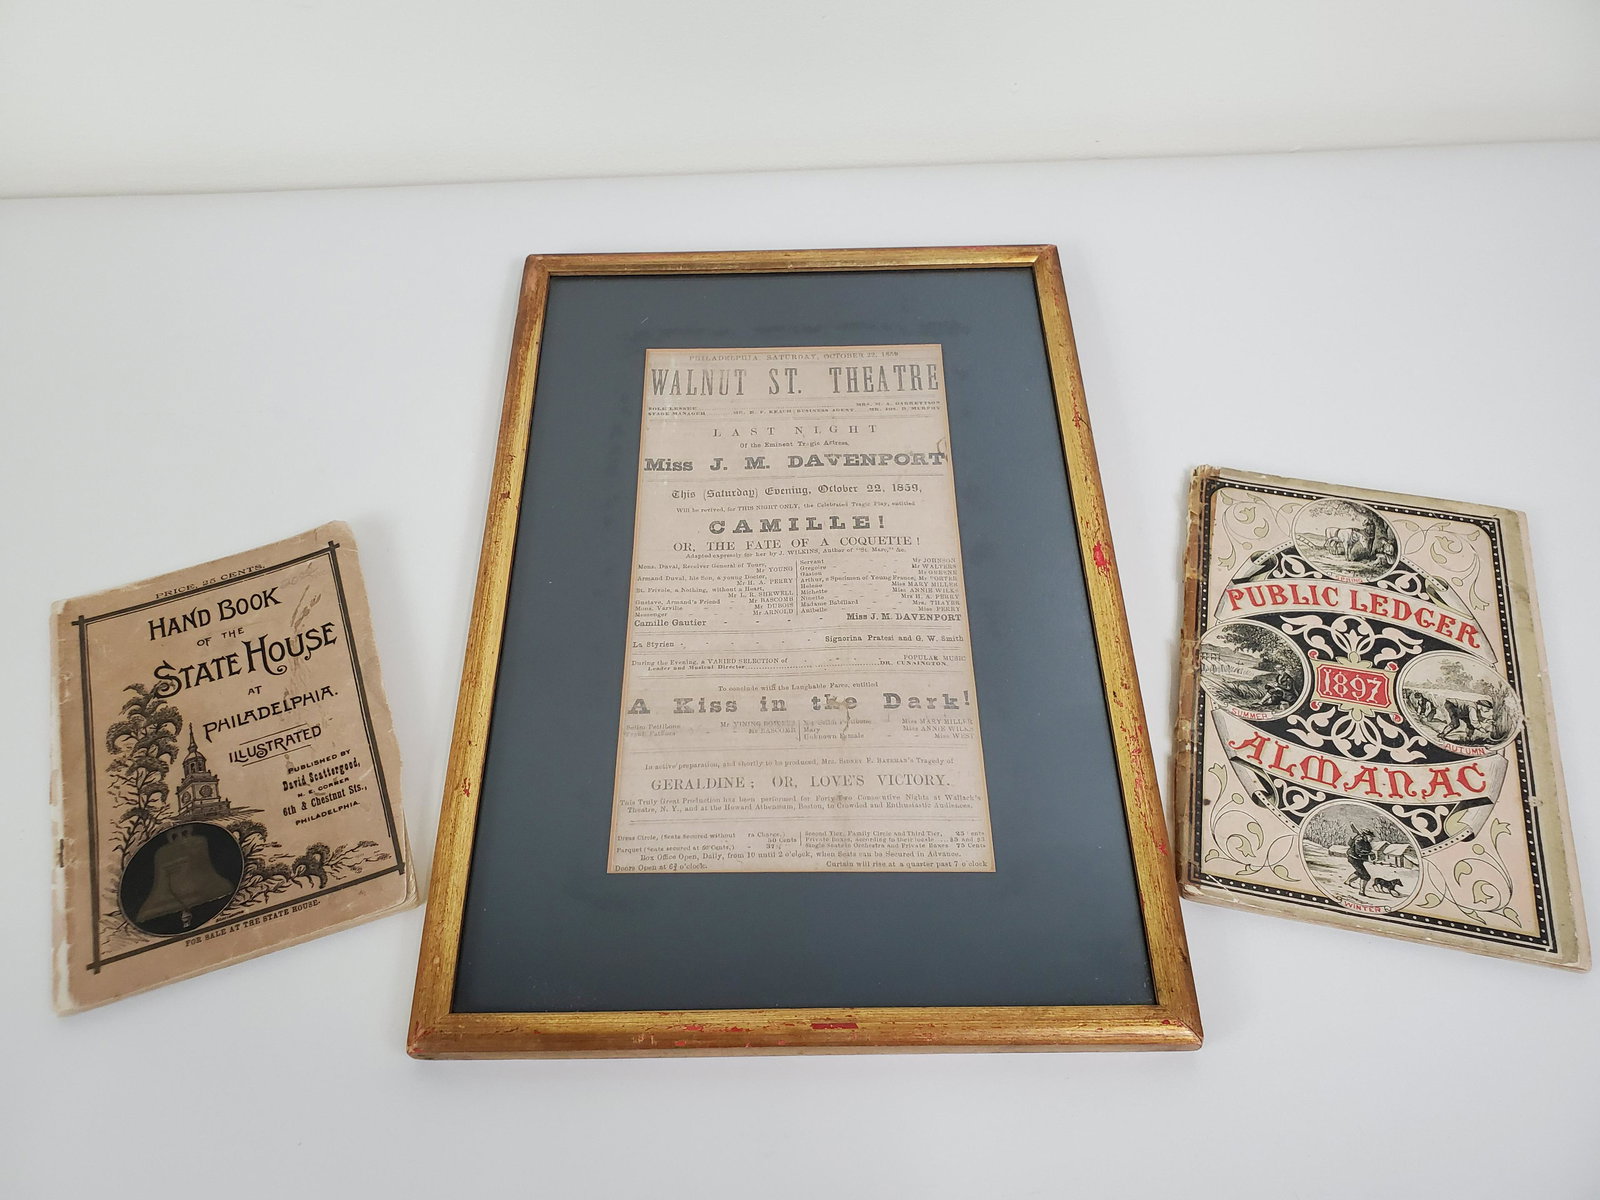 PRICE, 25 CENTS.
HAND BOOK
OF THE
STATE HOUSE
AT
PHILADELPHIA.
ILLUSTRATED
PUBLISHED BY
David Scattergood,
N. E. CORNER
6th & Chestnut Sts.,
PHILADELPHIA.
FOR SALE AT THE STATE HOUSE.
PHILADELPHIA, SATURDAY, OCTOBER 22, 1859
WALNUT ST. THEATRE
SOLE LESSEE MRS. M. A. GARRETTSON
STAGE MANAGER MR. B. F. KEACH BUSINESS AGENT MR. JOS. D. MURPHY
LAST NIGHT
Of the Eminent Tragic Actress,
Miss J. M. DAVENPORT
This (Saturday) Evening, October 22, 1859,
Will be revived, for THIS NIGHT ONLY, the Celebrated Tragic Play, entitled
CAMILLE!
OR, THE FATE OF A COQUETTE!
Adapted expressly for her by J. WILKINS, Author of "St. Marc," &c.
Mons. Duval, Receiver General of Tours,
Mr YOUNG
Armand Duval, his Son, a young Doctor,
Mr H. A. PERRY
St. Frivole, a Nothing, without a Heart,
Mr L. R. SHEWELL
Gustave, Armand's Friend - Mr BASCOMB
Mons. Varville - Mr DUBOIS
Messenger - Mr ARNOLD
Servant - Mr JOHNSON
Gregoire - Mr WALTERS
Gaston - Mr GREENE
Arthur, a Specimen of Young France, Mr PORTER
Helene Miss MARY MILLER
Michette - Miss ANNIE WILKS
Ninette - Mrs H. A. PERRY
Madame Batillard - Mrs. THAYER
Anibelle - Miss PERRY
Camille Gautier - - - - Miss J. M. DAVENPORT
La Styrien - - - Signorina Pratesi and G. W. Smith
During the Evening, a VARIED SELECTION of - - POPULAR MUSIC
Leader and Musical Director DR. CUNNINGTON.
To conclude with the Laughable Farce, entitled
A Kiss in the Dark!
Selim Pettibone Mr VINING BOWERS
Frank Fathom Mr BASCOMB
Mrs Selim Pettibone Miss MARY MILLER
Mary Miss ANNIE WILKS
Unknown Female - Miss WEST
In active preparation, and shortly to be produced, MRS. SIDNEY F. BATEMAN'S Tragedy of
GERALDINE; OR, LOVE'S VICTORY.
This Truly Great Production has been performed for Forty-Two Consecutive Nights at Wallack's
Theatre, N. Y., and at the Howard Athenæum, Boston, to Crowded and Enthusiastic Audiences.
Dress Circle, (Seats Secured without Charge,)
50 Cents
Parquet (Seats secured at 50 Cents,) - 37½
Second Tier, Family Circle and Third Tier, 25 cents
Private Boxes, according to their locale
Single Seats in Orchestra and Private Boxes 75 Cents
Box Office Open, Daily, from 10 until 2 o'clock, when Seats can be Secured in Advance.
Doors Open at 6¾ o'clock. Curtain will rise at a quarter past 7 o'clock
SPRING
PUBLIC LEDGER
1897
SUMMER
AUTUMN
ALMANAC
WINTER